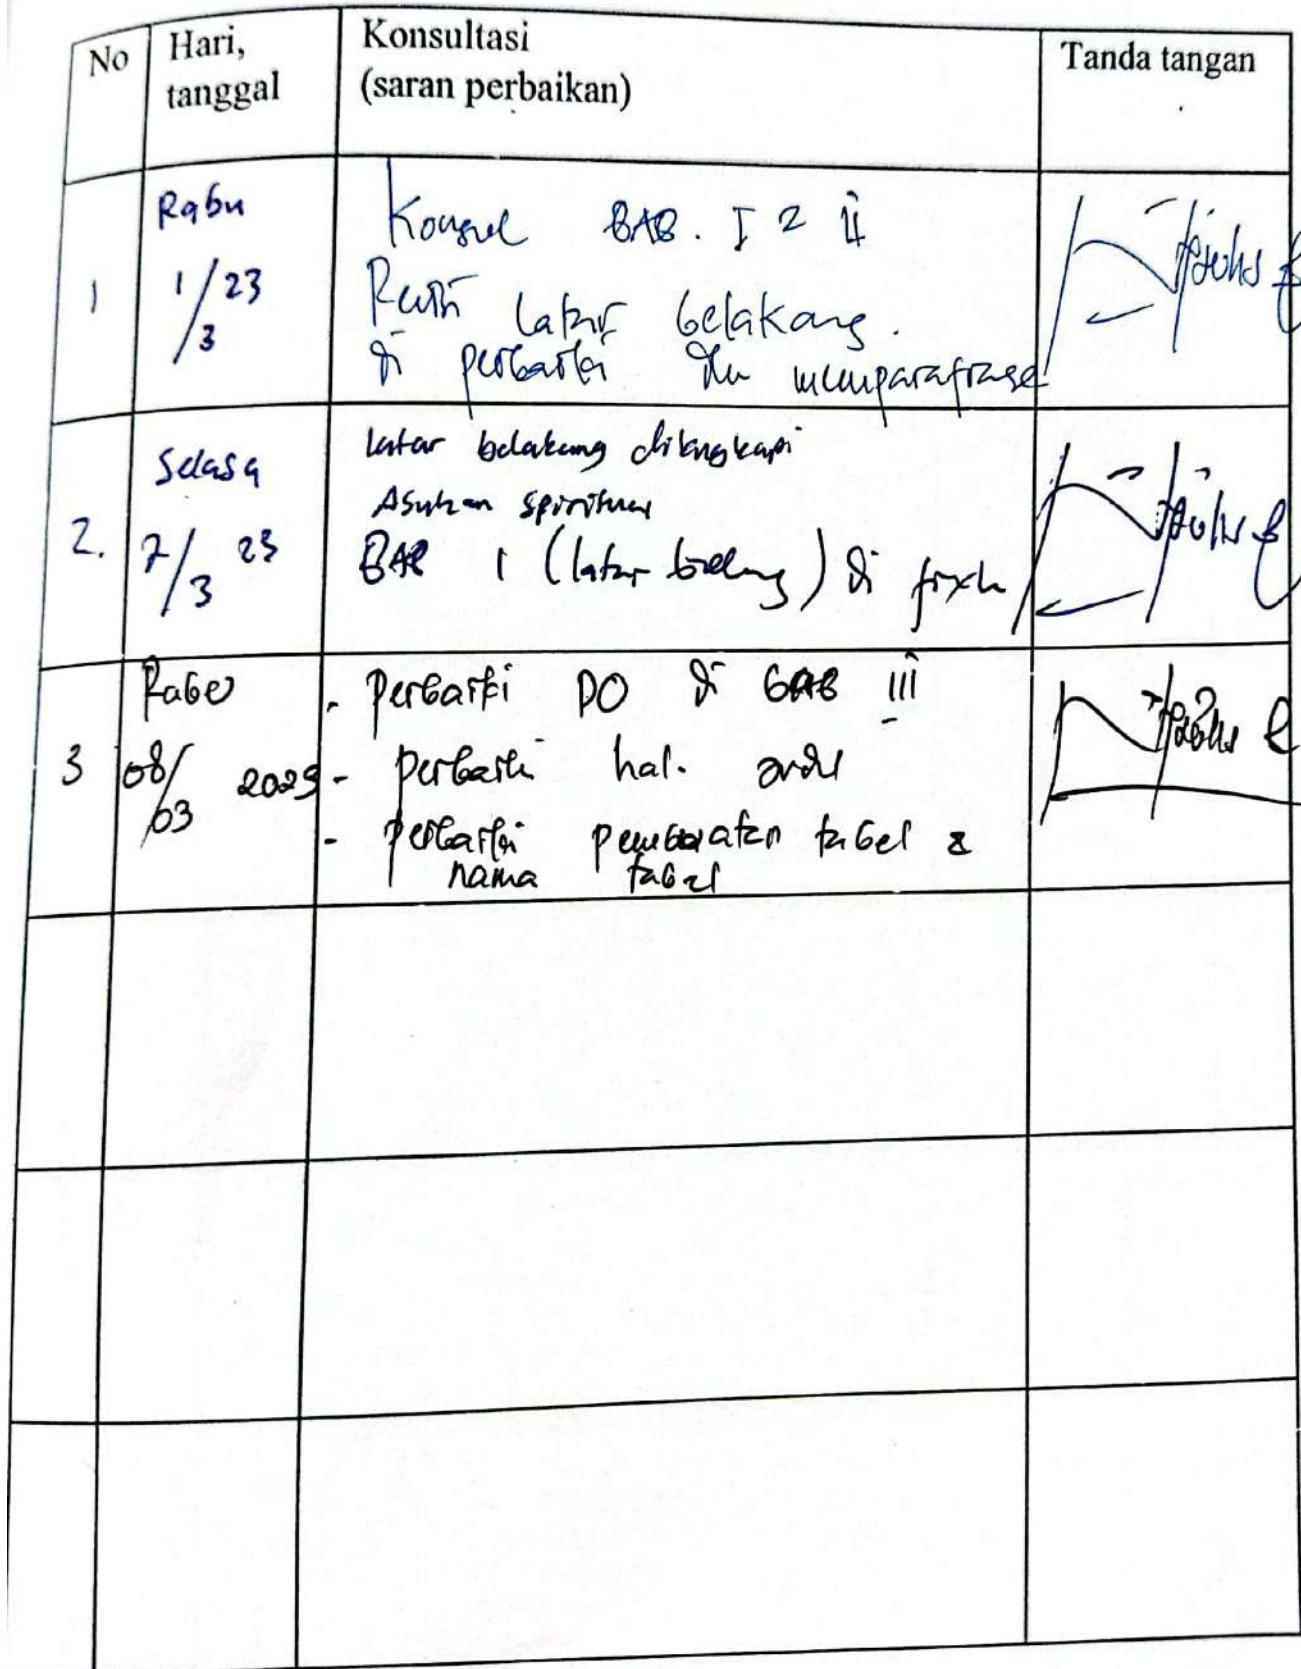 No
Hari,
tanggal
Konsultasi
(saran perbaikan)
Tanda tangan
1
Rabu
1/3 23
Konsul BAB. I 2 II
latar belakang.
di perbaiki memparafrase
2.
Selasa
7/3 23
latar belakang dilengkapi
Asuhan spiritual
BAB 1 (latar belakang) di
3
Rabu
08/03 2023
- Perbaiki DO di BAB III
- perbaiki hal.
- perbaiki pembuatan tabel &
nama tabel